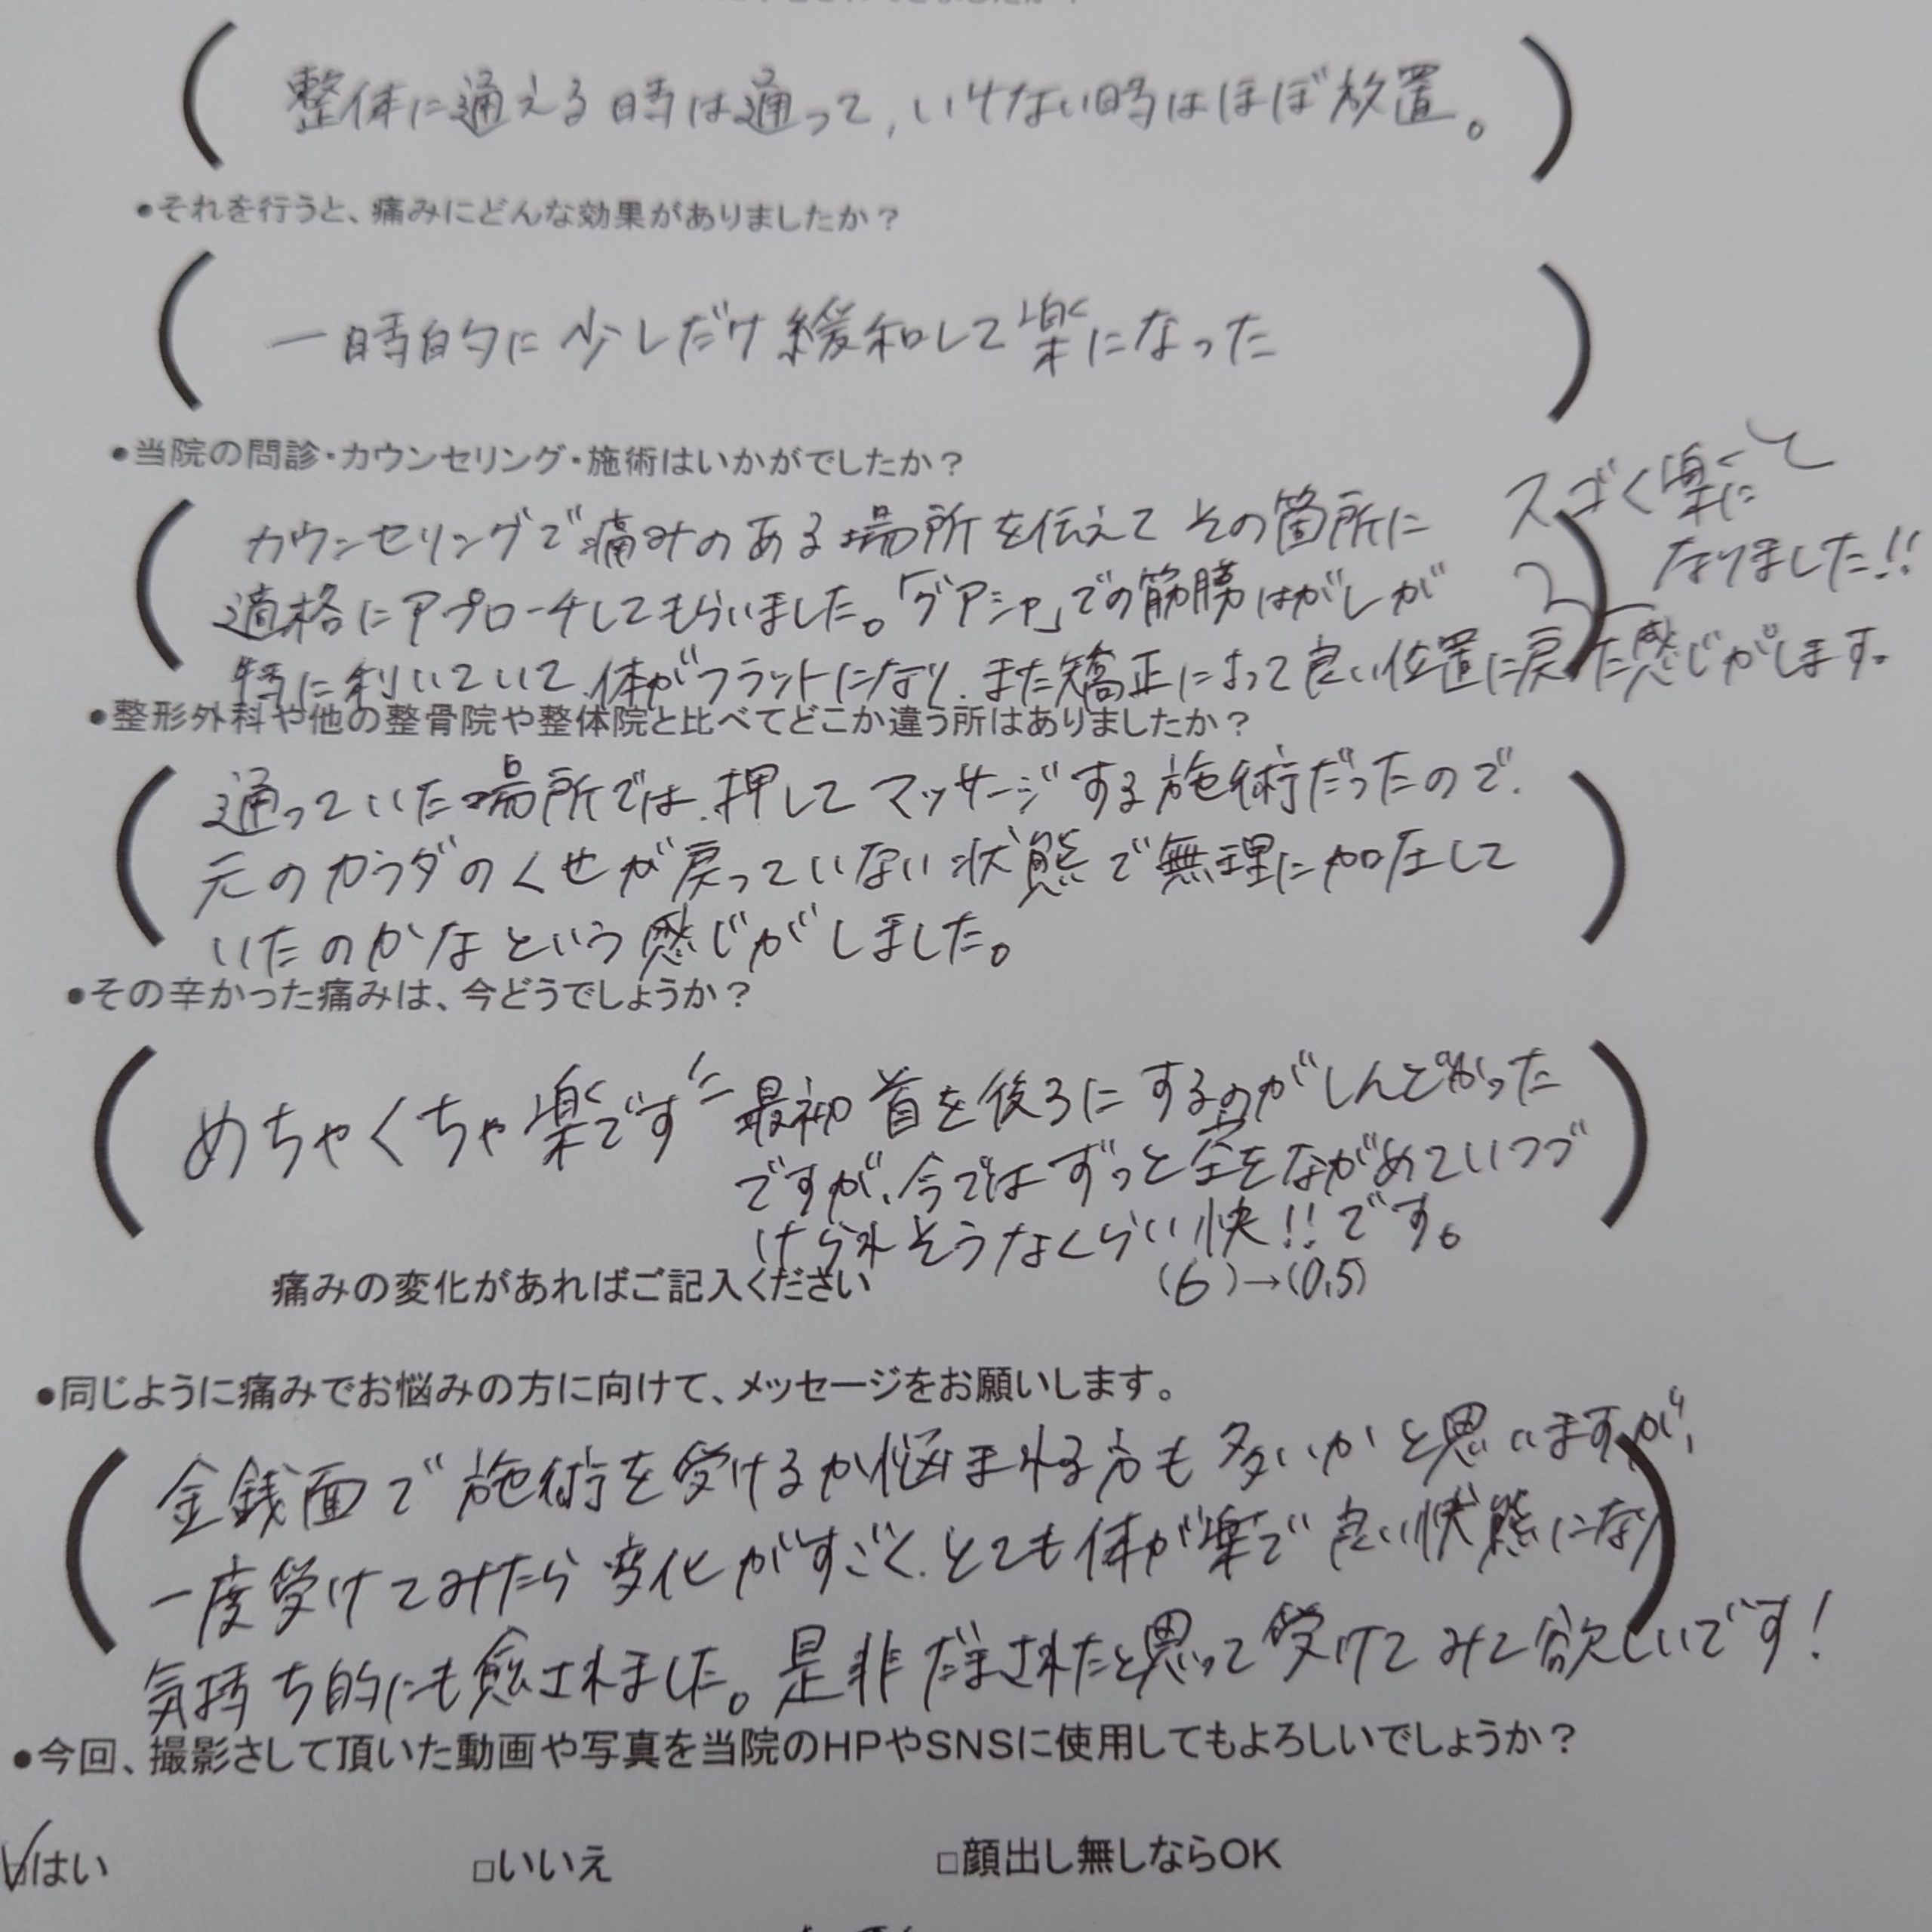 整体に通える時は通って、いけない時はほぼ放置。
●それを行うと、痛みにどんな効果がありましたか？
一時的に少しだけ緩和して楽になった
●当院の問診・カウンセリング・施術はいかがでしたか？
カウンセリングで痛みのある場所を伝えてその箇所に
適格にアプローチしてもらいました。「グアシャ」での筋膜はがしが
特に利いていて、体がフラットになり、また矯正によって良い位置に戻った感じがします。
スゴく楽に
なりました!!
●整形外科や他の整骨院や整体院と比べてどこか違う所はありましたか？
通っていた場所では、押してマッサージする施術だったので、
元のカラダのくせが戻っていない状態で無理に加圧して
いたのかなという感じがしました。
●その辛かった痛みは、今どうでしょうか？
めちゃくちゃ楽です!! 最初首を後ろにするのがしんどかった
ですが、今ではずっと空をながめていつづ
けられそうなくらい快!!です。
痛みの変化があればご記入ください (6)→(0.5)
●同じように痛みでお悩みの方に向けて、メッセージをお願いします。
金銭面で施術を受けるか悩まれる方も多いかと思いますが、
一度受けてみたら変化がすごく、とても体が楽で良い状態になり
気持ち的にも癒されました。是非だまされたと思って受けてみて欲しいです!
●今回、撮影さして頂いた動画や写真を当院のHPやSNSに使用してもよろしいでしょうか？
☑はい □いいえ □顔出し無しならOK